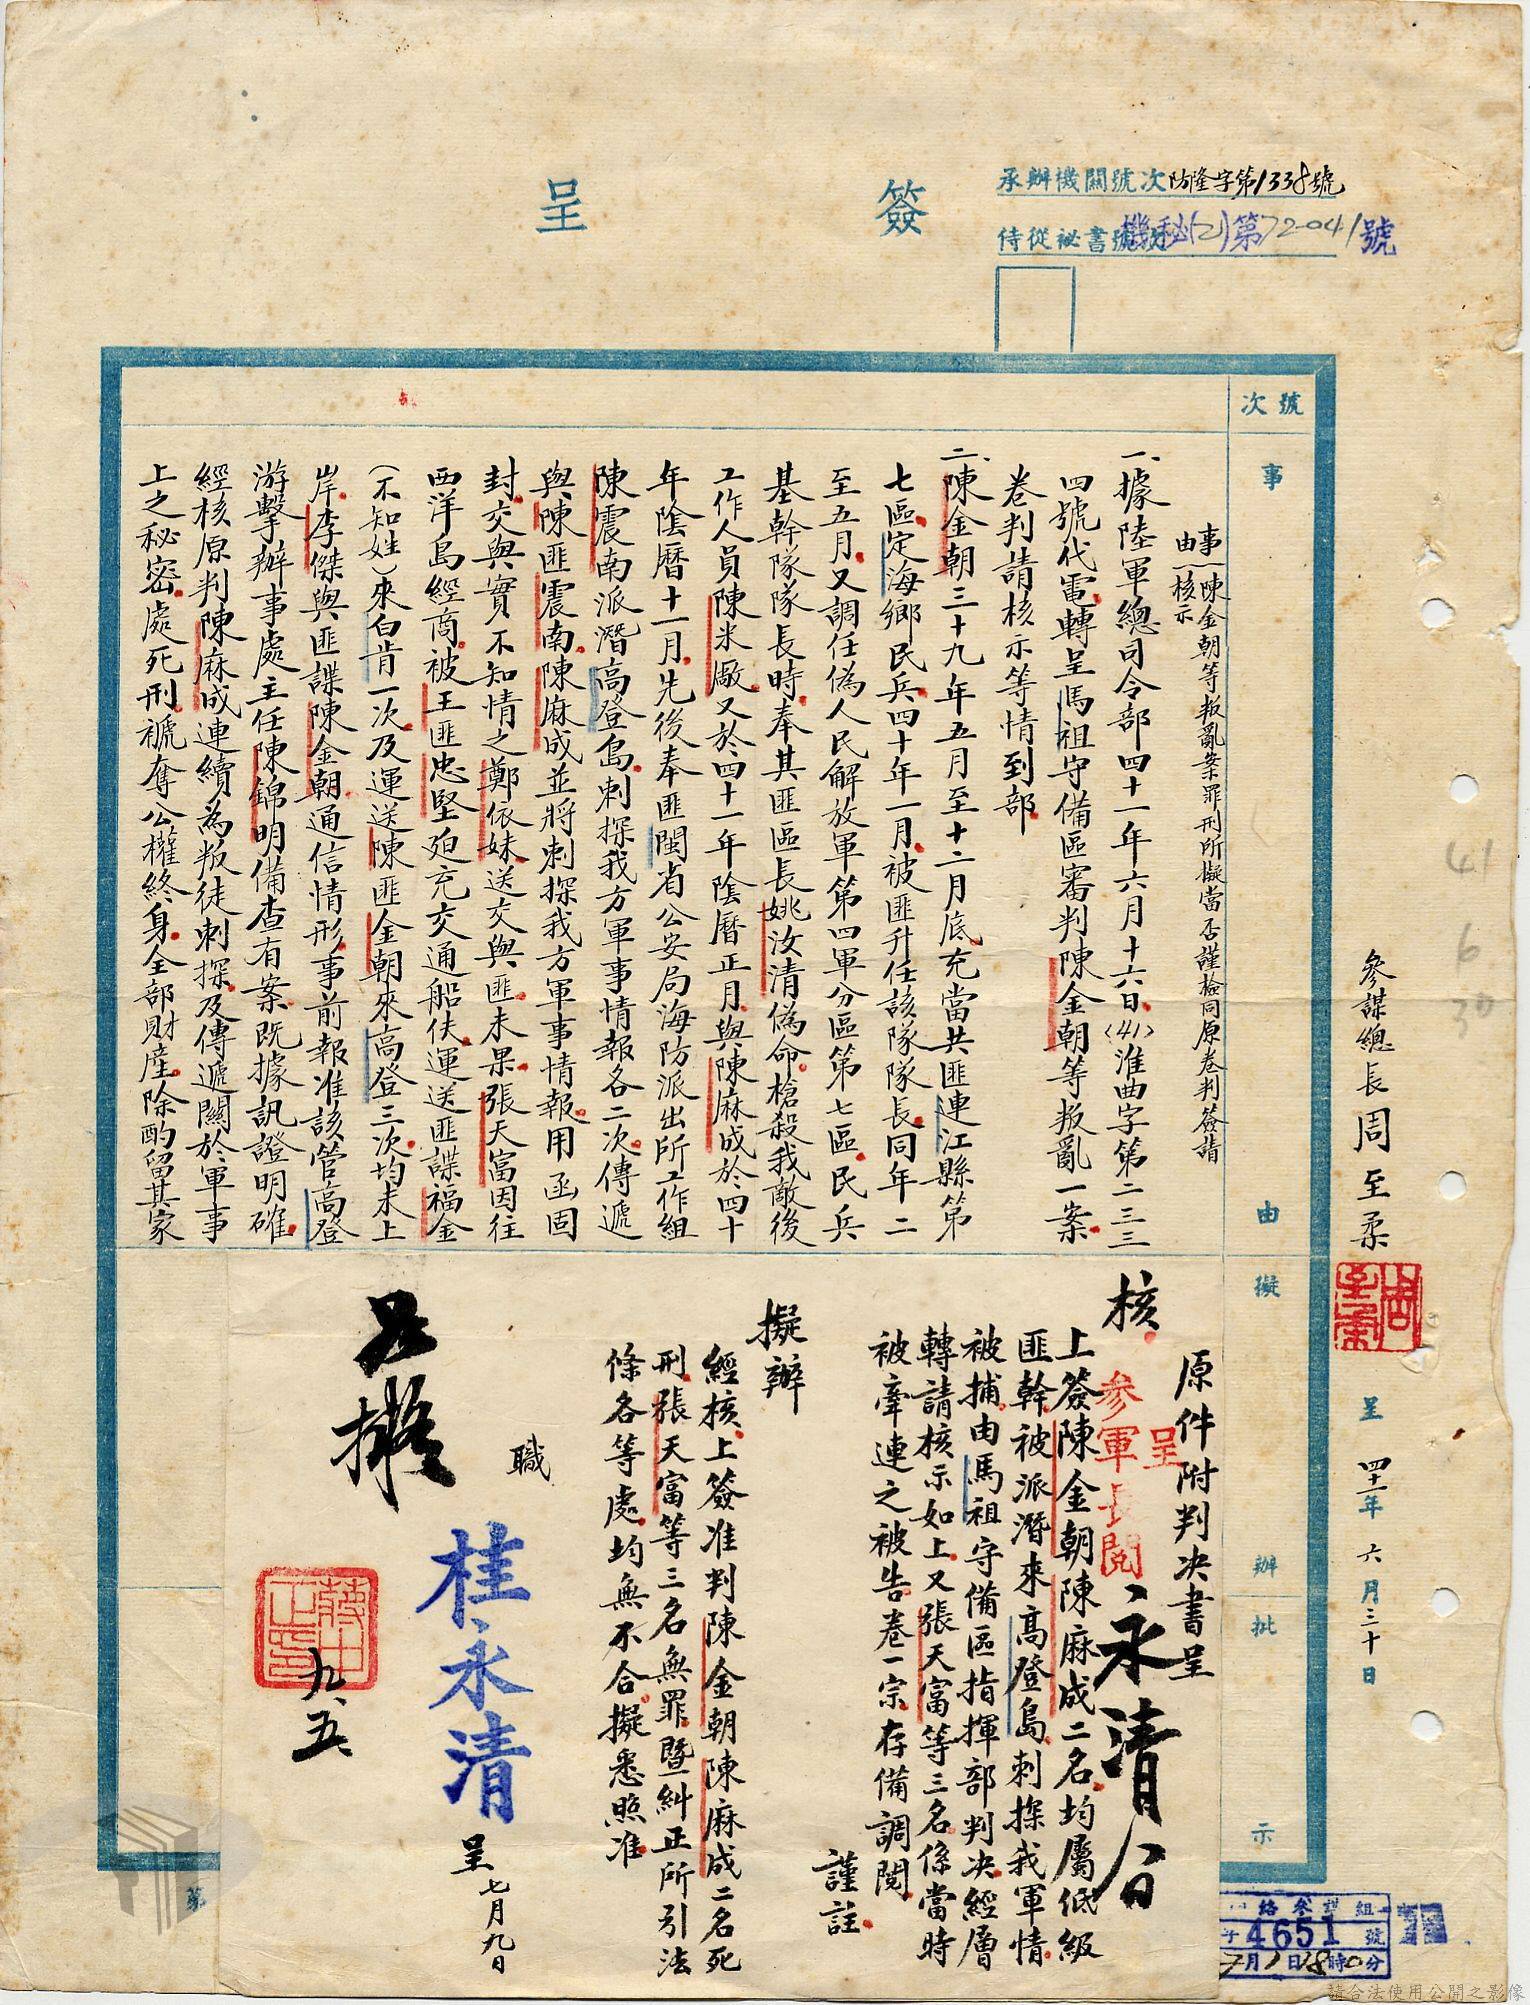 簽呈
承辦機關號次防隆字第1338號
侍從祕書號次機秘(乙)第72-041號
號次
事由
擬辦
批示
參謀總長周至柔
周至柔
呈四十一年六月三十日
41
6
30
事由
陳金朝等叛亂案罪刑所擬當否謹檢同原卷判簽請
核示
一、據陸軍總司令部四十一年六月十六日(41)淮曲字第二三三
四號代電轉呈馬祖守備區審判陳金朝等叛亂一案
卷判請核示等情到部
二、陳金朝三十九年五月至十二月底充當共匪連江縣第
七區定海鄉民兵四十年一月被匪升任該隊隊長同年二
至五月又調任偽人民解放軍第四軍分區第七區民兵
基幹隊隊長時奉其匪區長姚汝清偽命槍殺我敵後
工作人員陳米廠又於四十一年陰曆正月與陳麻成於四十
年陰曆十一月先後奉匪閩省公安局海防派出所工作組
陳震南派潛高登島刺探我方軍事情報各二次傳遞
與陳匪震南陳麻成並將刺探我方軍事情報用函固
封交與實不知情之鄭依妹送交與匪未果張天富因往
西洋島經商被王匪忠堅迫充交通船伕運送匪諜福金
(不知姓)來白肯一次及運送陳匪金朝來高登三次均未上
岸李傑與匪諜陳金朝通信情形事前報准該管高登
游擊辦事處主任陳錦明備查有案既據訊證明確
經核原判陳麻成連續為叛徒刺探及傳遞關於軍事
上之秘密處死刑褫奪公權終身全部財產除酌留其家
原件附判決書呈
核
呈
參軍長閱
永清
上簽陳金朝陳麻成二名均屬低級
匪幹被派潛來高登島刺探我軍情
被捕由馬祖守備區指揮部判決經層
轉請核示如上又張天富等三名係當時
被牽連之被告卷一宗存備調閱
謹註
擬辦
經核上簽准判陳金朝陳麻成二名死
刑張天富等三名無罪暨糾正所引法
條各等處均無不合擬悉照准
職
桂永清
呈七月九日
如擬
蔣中正印
九、五
4651號
7月1日18時0分
第
請合法使用公開之影像